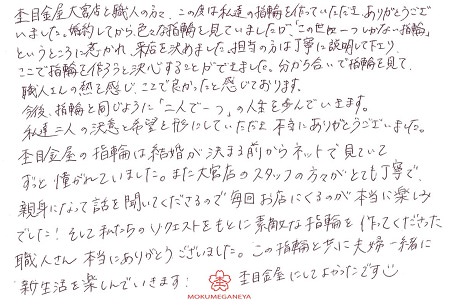 杢目金屋大宮店と職人の方々、この度は私達の指輪を作っていただき、ありがとうござ
いました。婚約してから色々な指輪を見ていましたが、"この世に一つしかない指輪"
というところに惹かれ、来店を決めました。担当の方は丁寧に説明して下さり、
ここで指輪を作ろうと決心することができました。分から合いで指輪を見て、
職人さんの熱を感じ、ここで良かったと感じております。
今後、指輪と同じように「二人で一つ」の人生を歩んでいきます。
私達二人の決意と希望を形にしていただき本当にありがとうございました。
杢目金屋の指輪は結婚が決まる前からネットで見ていて
ずっと憧がれていました。また大宮店のスタッフの方々がとても丁寧で、
親身になって話を聞いてくださるので毎回お店にくるのが本当に楽しみ
でした！そして私たちのリクエストをもとに素敵な指輪を作ってくださった
職人さん本当にありがとうございました。この指輪と共に夫婦一緒に
新生活を楽しんでいきます! 杢目金屋にしてよかったです
MOKUMEGANEYA